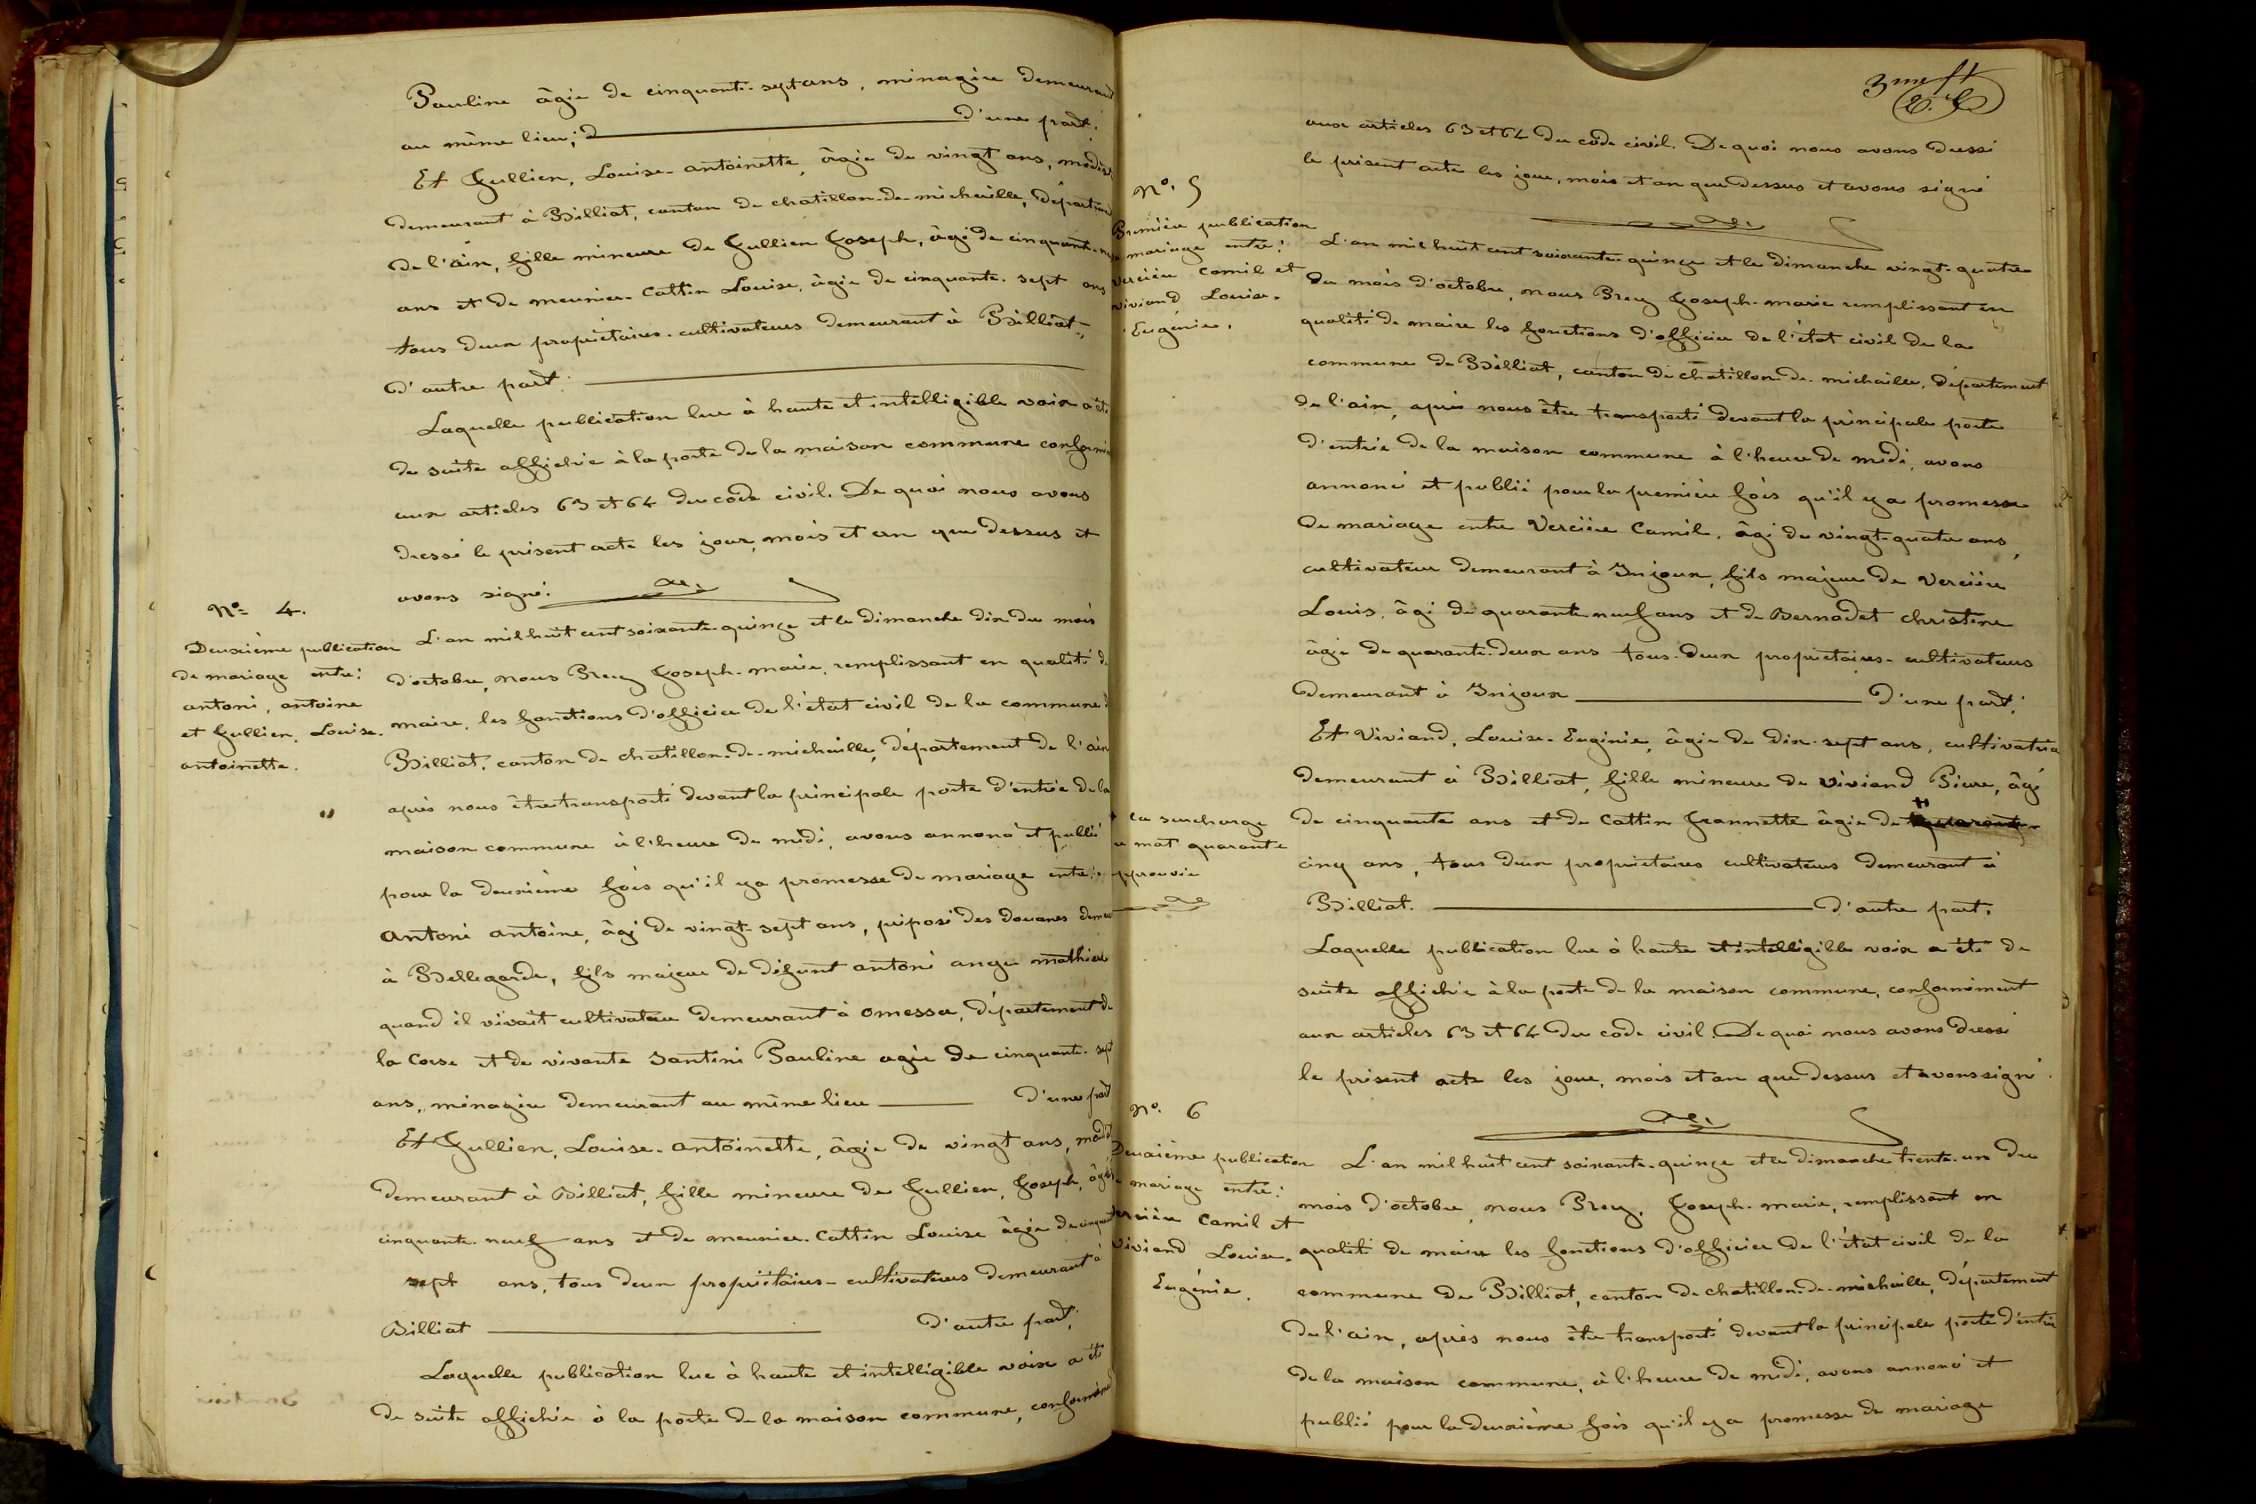 Pauline âgée de cinquante-sept ans, ménagère demeurant
au même lieu; d'une part;
Et Gullien, Louise-antoinette, âgée de vingt ans, modiste
demeurant à Billiat, canton de chatillon-de-michaille, département
de l'ain, fille mineure de Gullien Joseph, âgé de cinquante-neuf
ans et de meunier-Cattin Louise, âgée de cinquante-sept ans
tous deux propriétaires-cultivateurs demeurant à Billiat;
d'autre part.
Laquelle publication lue à haute et intelligible voix a été
de suite affichée à la porte de la maison commune conformé
aux articles 63 et 64 du code civil. De quoi nous avons
dressé le présent acte les jour, mois et an que dessus et
avons signé.
No. 4.
Deuxième publication
de mariage entre:
antoni, antoine
et Gullien, Louise-
antoinette.
L'an mil huit cent soixante-quinze et le dimanche dix du mois
d'octobre, nous Brey Joseph-marie, remplissant en qualité de
maire, les fonctions d'officier de l'état civil de la commune d
Billiat, canton de chatillon-de-michaille, département de l'ain
après nous être transporté devant la principale porte d'entrée de la
maison commune à l'heure de midi, avons annoncé et publié
pour la deuxième fois qu'il y a promesse de mariage entre:
Antoni antoine, âgé de vingt-sept ans, préposé des douanes demeu
à Bellegarde, fils majeur de défunt antoni ange mathieu
quand il vivait cultivateur demeurant à omessa, département de
la Corse et de vivante Santini Pauline agée de cinquante-sept
ans, ménagère demeurant au même lieu d'une part
Et Gullien, Louise-antoinette, âgée de vingt ans, modiste
demeurant à Billiat, fille mineure de Gullien, Joseph, âgé
cinquante-neuf ans et de meunier-Cattin Louise âgée de cinquante
sept ans, tous deux propriétaires-cultivateurs demeurant à
Billiat d'autre part;
Laquelle publication lue à haute et intelligible voix a été
de suite affichée à la porte de la maison commune, conformément
3me ft
aux articles 63 et 64 du code civil. De quoi nous avons dressé
le présent acte les jour, mois et an que dessus et avons signé
No. 5
Première publication
mariage entre:
Vercière Camil et
viviand Louise-
Eugénie.
L'an mil huit cent soixante-quinze et le dimanche vingt-quatre
du mois d'octobre, nous Brey Joseph-marie remplissant en
qualité de maire les fonctions d'officier de l'état civil de la
commune de Billiat, canton de chatillon-de-michaille, département
de l'ain, après nous être transporté devant la principale porte
d'entrée de la maison commune à l'heure de midi, avons
annoncé et publié pour la première fois qu'il y a promesse
de mariage entre Vercière Camil, âgé de vingt-quatre ans,
cultivateur demeurant à Injoux, fils majeur de Vercière
Louis, âgé de quarante neuf ans et de Bernadet christine
âgée de quarante-deux ans tous-deux propriétaires-cultivateurs
demeurant à Injoux d'une part;
Et Viviand, Louise-Eugénie, âgée de dix-sept ans, cultivatrice
demeurant à Billiat, fille mineure de Viviand Pierre, âgé
de cinquante ans et de Cattin Jeannette âgée de quarante-
cinq ans, tous deux propriétaires cultivateurs demeurant à
Billiat. d'autre part.
la surcharge
mot quarante
approuvée
Laquelle publication lue à haute et intelligible voix a été de
suite affichée à la porte de la maison commune, conformément
aux articles 63 et 64 du code civil. De quoi nous avons dressé
le présent acte les jour, mois et an que dessus et avons signé.
No. 6
Deuxième publication
mariage entre:
Vercière Camil et
Viviand Louise-
Eugénie.
L'an mil huit cent soixante-quinze et le dimanche trente-un du
mois d'octobre, nous Brey, Joseph-marie, remplissant en
qualité de maire les fonctions d'officier de l'état civil de la
commune de Billiat, canton de chatillon-de-michaille, département
de l'ain, après nous être transporté devant la principale porte d'entrée
de la maison commune, à l'heure de midi, avons annoncé et
publié pour la deuxième fois qu'il y a promesse de mariage